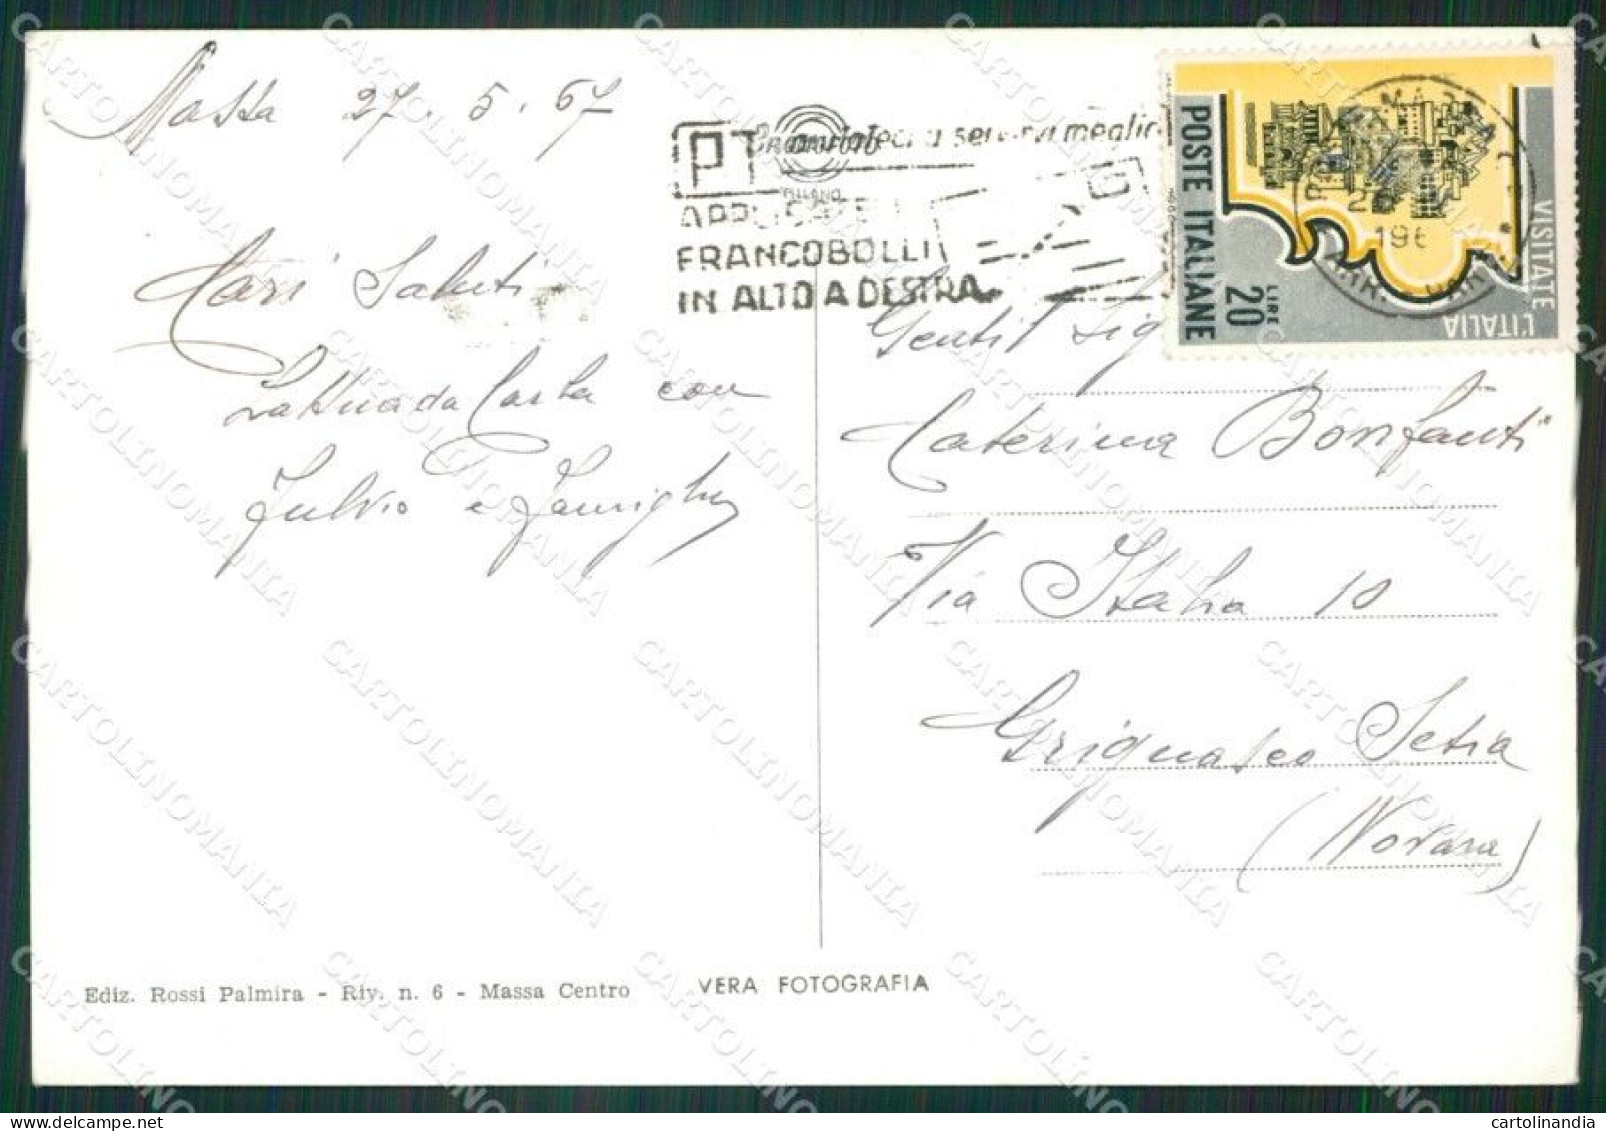 Massa 27.5.67
Cari Saluti
Lattuada Carla con
Fulvio e Famiglia
PT
aiutateci a servirvi meglio
MILANO
APPLICATE I
FRANCOBOLLI
IN ALTO A DESTRA
POSTE ITALIANE
LIRE
20
VISITATE
L'ITALIA
196
Gentil Sig
Caterina Bonfanti
Via Italia 10
Grignasco Sesia
(Novara)
Ediz. Rossi Palmira - Riv. n. 6 - Massa Centro
VERA FOTOGRAFIA
CARTOLINOMANIA
cartolinandia